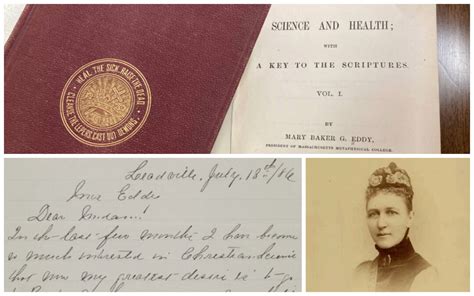 HEAL THE SICK. RAISE THE DEAD.
CLEANSE THE LEPERS. CAST OUT DEMONS.
SCIENCE AND HEALTH;
WITH
A KEY TO THE SCRIPTURES.
VOL. I.
BY
MARY BAKER G. EDDY,
PRESIDENT OF MASSACHUSETTS METAPHYSICAL COLLEGE
Leadville, July, 18th/86
Mrs Eddy
Dear Madam!
In the last few months I has become
so much interested in Christianscience
that now my greatest desire is to go